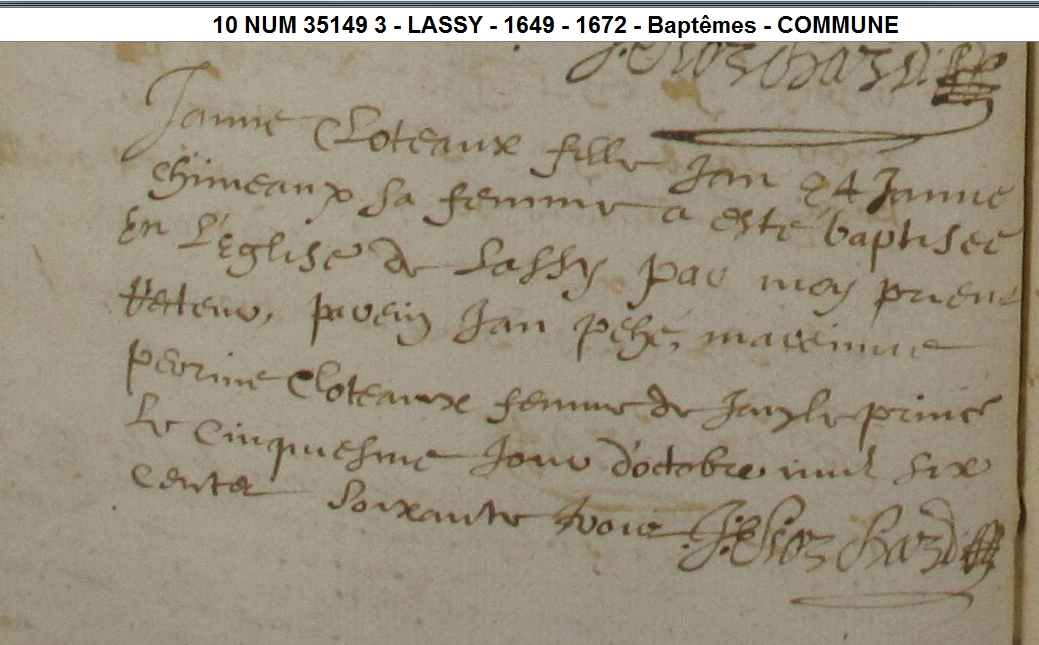 10 NUM 35149 3 - LASSY - 1649 - 1672 - Baptêmes - COMMUNE
Janne Cloteaux fille Jan & Janne
chimeaux sa femme a esté baptisee
en L'eglise de Lassy par moy
Recteur, parein Jan pehé, mareinne
perrine Cloteaux femme de Jan le prince
Le cinquesme Jour d'octobre mil six
Cents soixante trois